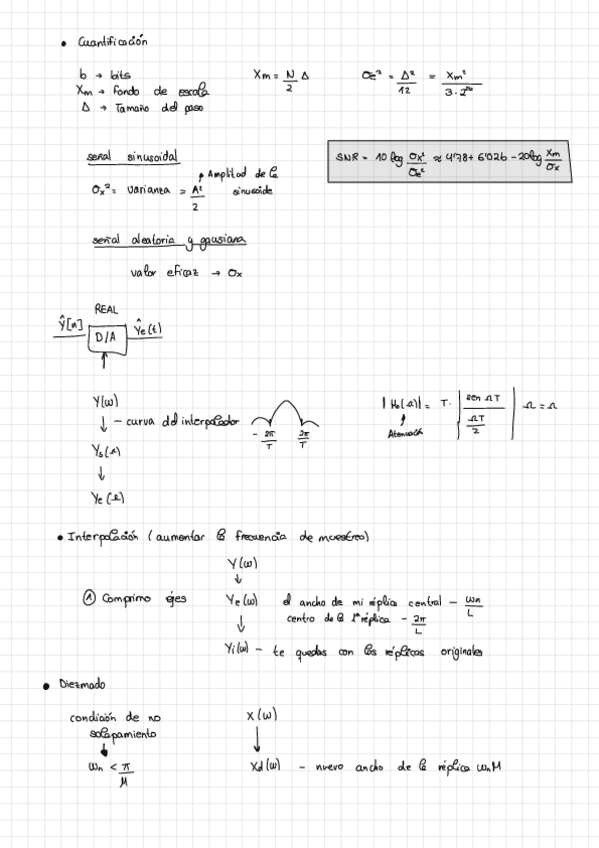 • Cuantificación
b → bits
Xm → fondo de escala
Δ → Tamaño del paso
Xm = N/2 Δ
σe² = Δ²/12 = Xm²/3·2²ᵇ
señal sinusoidal
σx² = varianza = A²/2
Amplitud de la sinusoide
SNR = 10 log σx²/σe² ≈ 4'78 + 6'02b - 20log Xm/σx
señal aleatoria y gausiana
valor eficaz → σx
REAL
ŷ[n] D/A ŷe(t)
Y(ω)
↓ - curva del interpolador
- 2π/T 2π/T
Ys(Ω)
↓
Ye(Ω)
|Ho(Ω)| = T · | sen ΩT / ΩT/2 | Ω = Ω
Atenuación
• Interpolación (aumentar la frecuencia de muestreo)
Y(ω)
↓
① Comprimo ejes
Ye(ω) el ancho de mi réplica central - ωn/L
centro de la 1ª réplica - 2π/L
↓
Yi(ω) - te quedas con las réplicas originales
• Diezmado
condición de no
solapamiento
↓
ωn < π/M
X(ω)
↓
Xd(ω) - nuevo ancho de la réplica ωnM